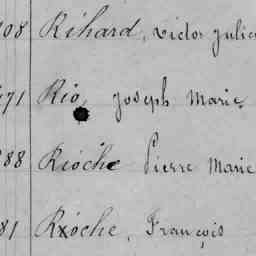 908 Rihard, Victor Julien
971 Rio, Joseph Marie
288 Rioche Pierre Marie
81 Rioche, François